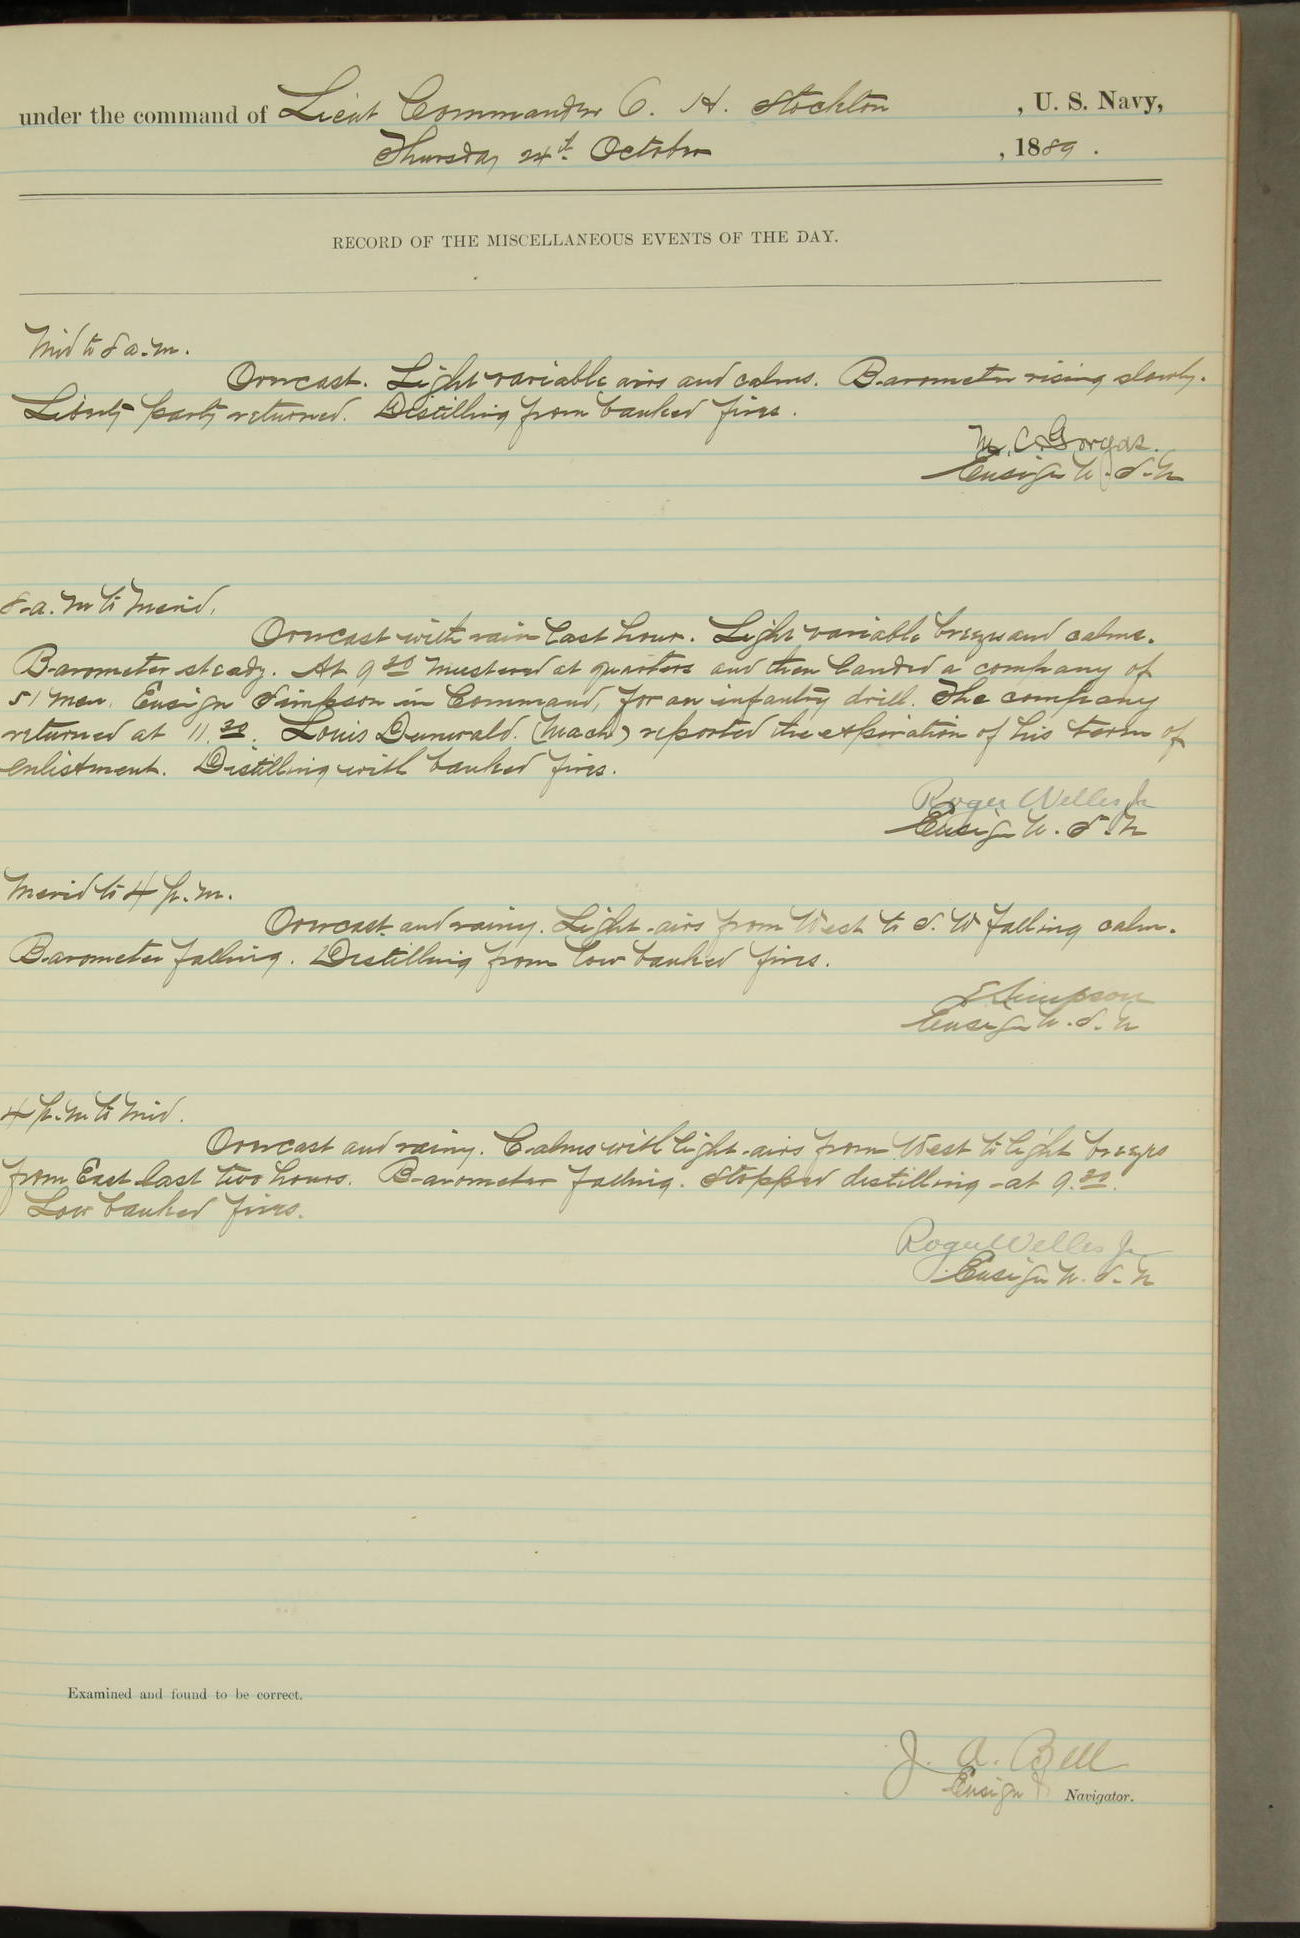 under the command of Lieut Commander C. H. Stockton, U. S. Navy,
Thursday 24th October, 1889.
RECORD OF THE MISCELLANEOUS EVENTS OF THE DAY.
Mid to 8 a.m.
Overcast. Light variable airs and calms. Barometer rising slowly.
Liberty party returned. Distilling from banked fires.
M. C. Gorgas.
Ensign U.S.N
8 a.m to Merid.
Overcast with rain last hour. Light variable breezes and calms.
Barometer steady. At 9 30 mustered at quarters and then landed a company of
51 men, Ensign Simpson in Command, for an infantry drill. The company
returned at 11.30. Louis Dunwald. (Mach) reported the expiration of his term of
enlistment. Distilling with banked fires.
Roger Welles Jr
Ensign U.S.N
Merid to 4 p.m.
Overcast and rainy. Light airs from West to S.W falling calm.
Barometer falling. Distilling from low banked fires.
E Simpson
Ensign U.S.N
4 p.m to Mid.
Overcast and rainy. Calms with light airs from West to light breezes
from East last two hours. Barometer falling. Stopped distilling at 9.
Low banked fires.
Roger Welles Jr
Ensign U.S.N
Examined and found to be correct.
J. A. Bell
Ensign & Navigator.